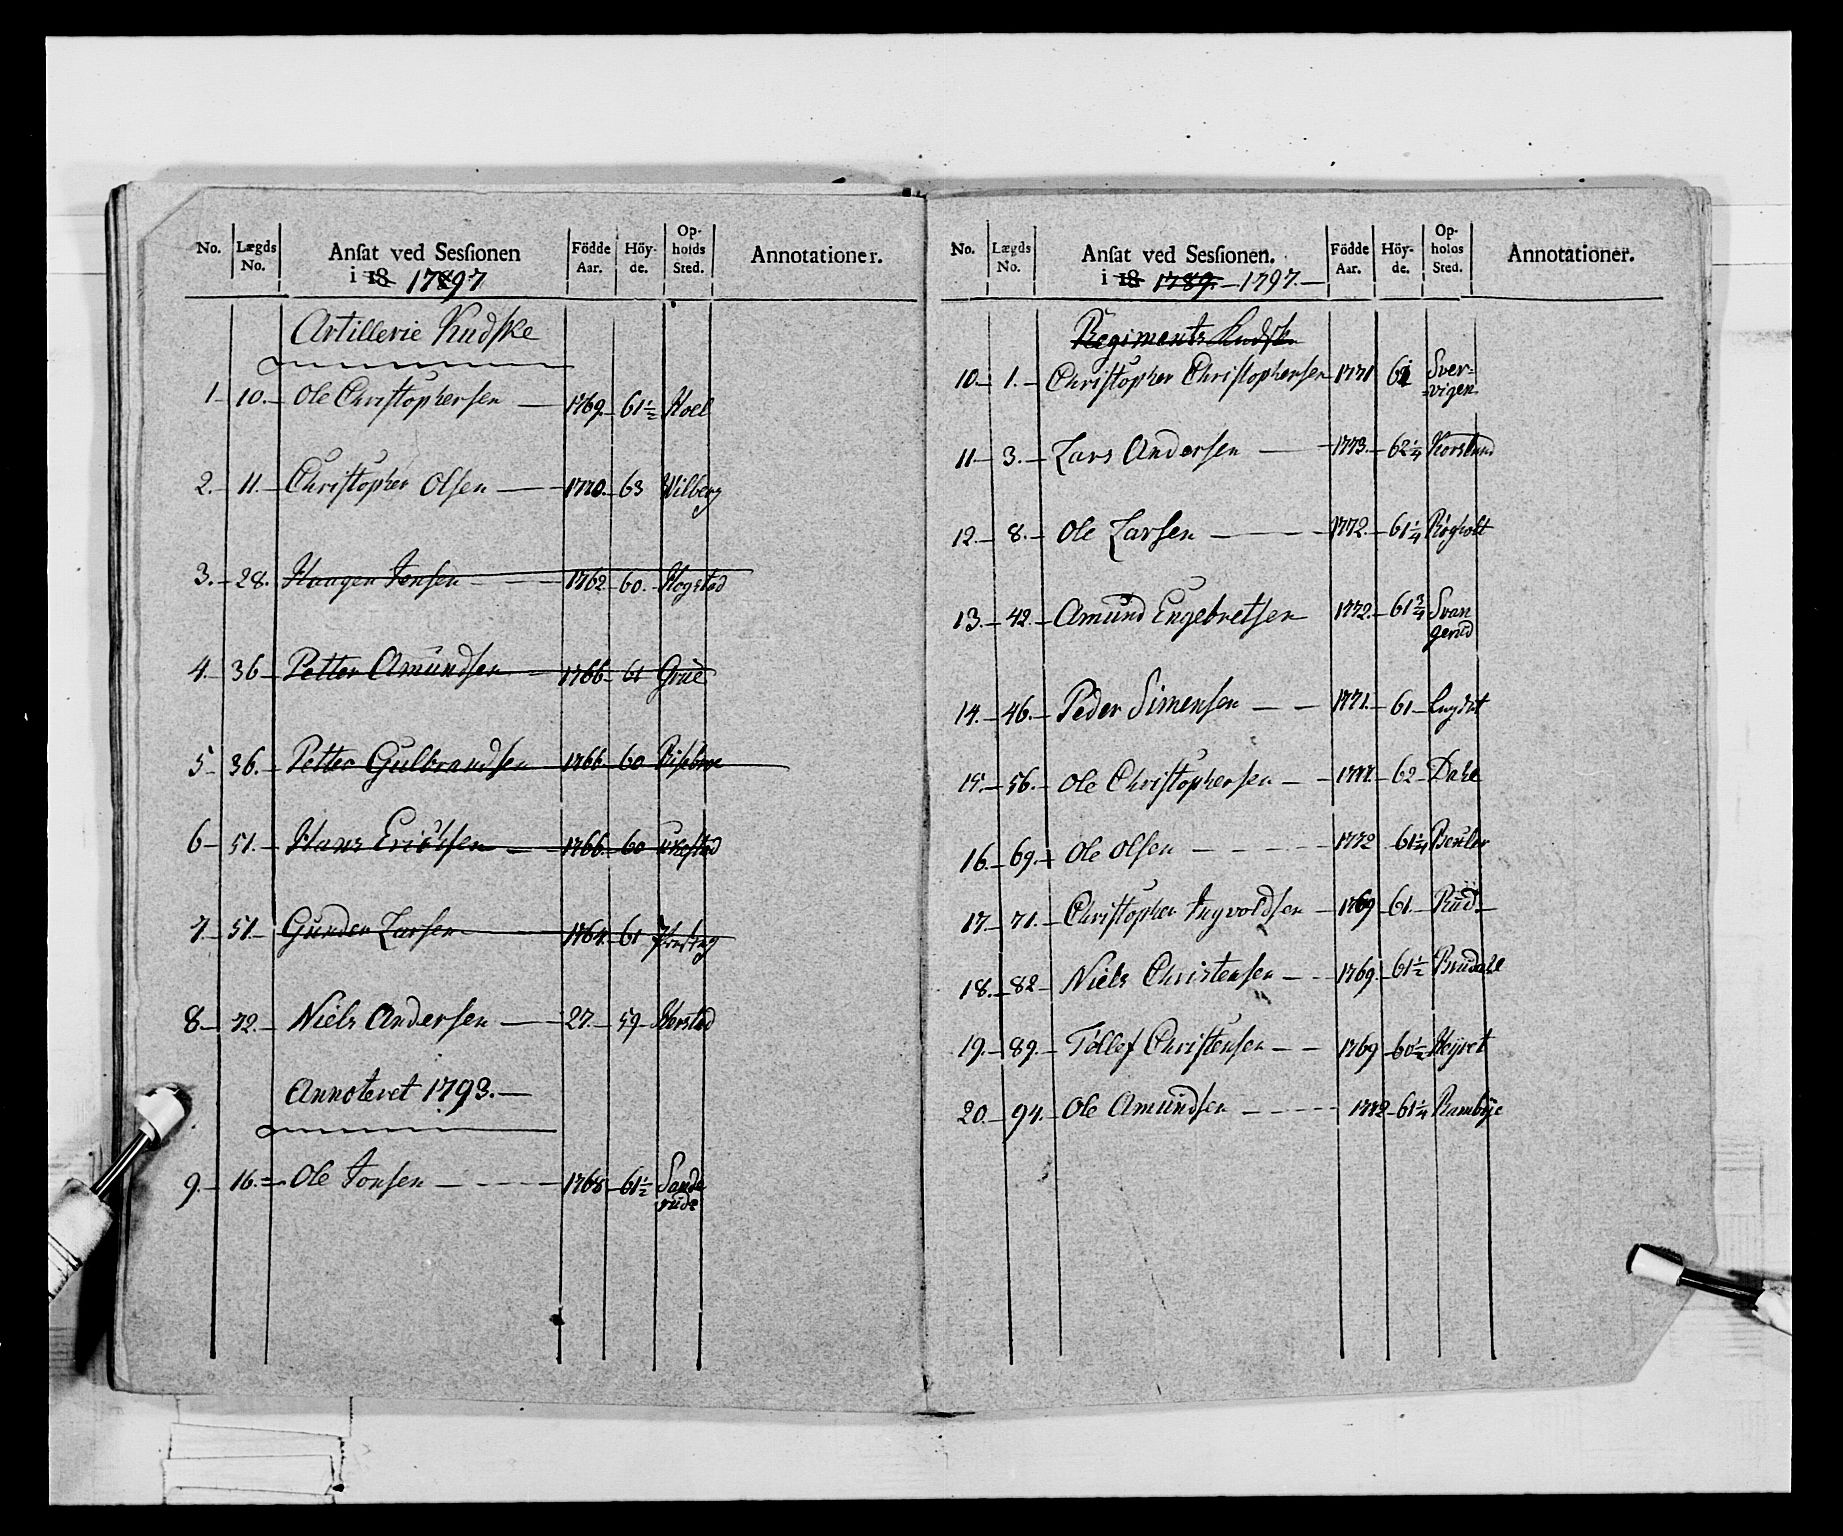 No. Lægds No. Ansat ved Sessionen i 18 1797 Födde Aar. Höyde. Opholds Sted. Annotationer.
Artillerie Kudske
1 10. Ole Christophersen 1769. 61½ Hoel
2. 11. Christopher Olsen 1770. 63 Wilberg
3. 28. Haagen Jonsen 1762 60. Hogstad
4. 36 Petter Amundsen 1766 61 Grue
5 36. Petter Gulbrandsen 1766 60
6 51. Hans Erichsen 1766. 60
7. 51. Gunder Larsen 1764. 61
8 72. Niels Andersen 27. 59 Korstad
Annoteret 1793.
9. 16. Ole Jonsen 1768 61½ Sande
rude
No. Lægds No. Ansat ved Sessionen. i 18 1789. 1797. Födde Aar. Höyde. Opholds Sted. Annotationer.
Regiments Kudsk
10. 1. Christopher Christophersen 1771 61 Sver-
vigen
11. 3. Lars Andersen 1773. 62¼ Korslund
12. 8. Ole Larsen 1772. 61¼ Rögholt
13. 42. Amund Engebretsen 1772. 61¾ Svan
gerud
14. 46. Peder Simensen 1771. 61
15. 56. Ole Christophersen 1771. 62 Dahl
16. 69. Ole Olsen 1772 61¼
17. 71. Christopher Ingvoldsen 1769 61 Rud
18. 82 Niels Christensen 1769. 61½ Brudahl
19. 89. Tollef Christensen 1769 60½
20. 94. Ole Amundsen 1772 61¼